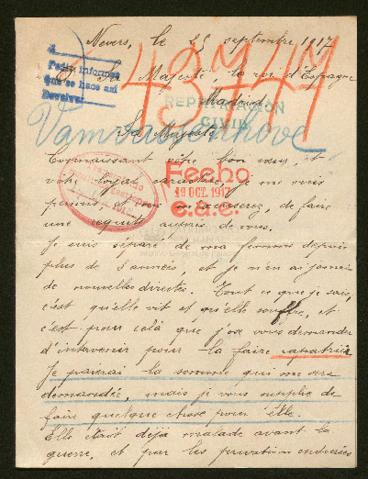 Nevers, le 25 septembre 1917
A
Pedir informes
que se hace así
Devolver
43741
Sa Majesté, le roi d'Espagne
Madrid
REPATRIACIÓN
CIVIL
Sa Majesté
Connaissant votre bon cœur, et
votre loyal caractère, je me suis
permis, et vous m'excuserez, de faire
une requête auprès de vous.
Fecho
19 OCT. 1917
e.a.e.
Je suis séparé de ma femme depuis
plus de 3 années, et je n'en ai jamais
de nouvelles directes. Tout ce que je sais,
c'est qu'elle vit et qu'elle souffre, et
c'est pour cela que j'ose vous demander
d'intervenir pour la faire rapatrier.
Je paierais la somme qui me sera
demandée, mais je vous supplie de
faire quelque chose pour elle.
Elle était déjà malade avant la
guerre, et par les privations endurées